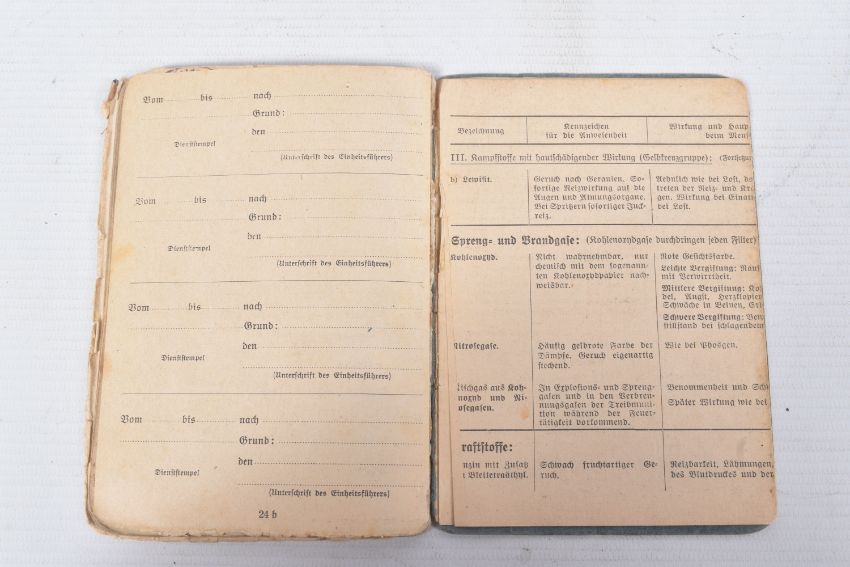 Vom bis nach
Grund:
den
Dienststempel
(Unterschrift des Einheitsführers)
Vom bis nach
Grund:
den
Dienststempel
(Unterschrift des Einheitsführers)
Vom bis nach
Grund:
den
Dienststempel
(Unterschrift des Einheitsführers)
Vom bis nach
Grund:
den
Dienststempel
(Unterschrift des Einheitsführers)
24 b
Bezeichnung
Kennzeichen
für die Anwesenheit
Wirkung und Haup
beim Mens
III. Kampfstoffe mit hautschädigender Wirkung (Gelbkreuzgruppe): (Fortsetzung
b) Lewisit.
Geruch nach Geranien. So-
fortige Reizwirkung auf die
Augen und Atmungsorgane.
Bei Spritzern sofortiger Juck-
reiz.
Aehnlich wie bei Lost, do
treten der Reiz- und Krä
gen. Wirkung bei Einat
bei Lost.
Spreng- und Brandgase: (Kohlenoxydgase durchdringen jeden Filter)
Kohlenoxyd.
Nicht wahrnehmbar, nur
chemisch mit dem sogenann-
ten Kohlenoxydpapier nach-
weisbar.
Rote Gesichtsfarbe.
Leichte Vergiftung: Raus
mit Verwirrtheit.
Mittlere Vergiftung: Kop
del, Angst, Herzklopfen
Schwäche in Beinen, Erb
Schwere Vergiftung: Bew
stillstand bei schlagendem
Nitrosegase.
Häufig gelbrote Farbe der
Dämpfe. Geruch eigenartig
stechend.
Wie bei Phosgen.
Mischgas aus Koh-
noxyd und Ni-
osegasen.
In Explosions- und Spreng-
gasen und in den Verbren-
nungsgasen der Treibmuni-
tion während der Feuer-
tätigkeit vorkommend.
Benommenheit und Sch
Später Wirkung wie bei
raftstoffe:
nzin mit Zusatz
i Bleitetraäthyl.
Schwach fruchtartiger Ge-
ruch.
Reizbarkeit, Lähmungen,
des Blutdruckes und der